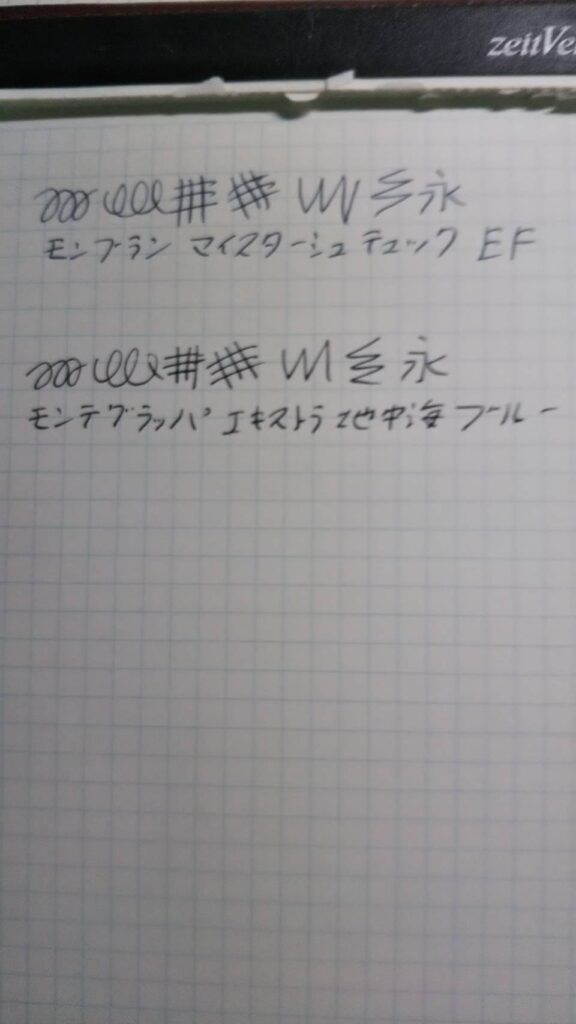 zeitVe
永
モンブラン マイスターシュテュック EF
永
モンテグラッパ エキストラ 地中海ブルー